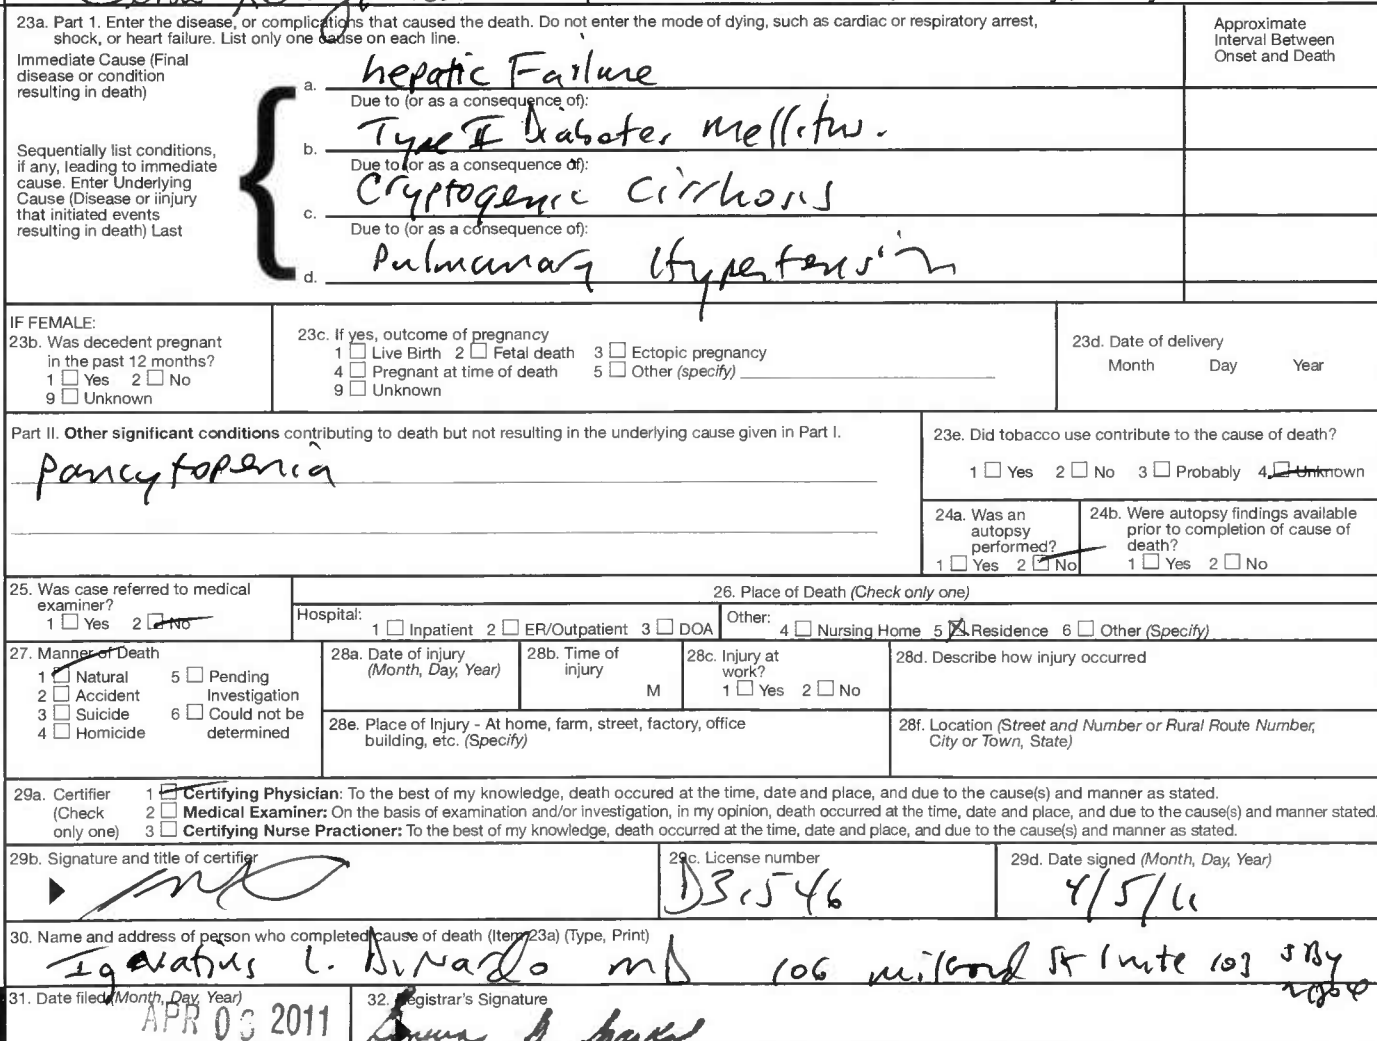 23a. Part 1. Enter the disease, or complications that caused the death. Do not enter the mode of dying, such as cardiac or respiratory arrest,
shock, or heart failure. List only one cause on each line.
Approximate
Interval Between
Onset and Death
Immediate Cause (Final
disease or condition
resulting in death)
a. hepatic Failure
Due to (or as a consequence of):
Sequentially list conditions,
if any, leading to immediate
cause. Enter Underlying
Cause (Disease or iinjury
that initiated events
resulting in death) Last
b. Type II Diabetes Mellitus.
Due to (or as a consequence of):
c. Cryptogenic Cirrhosis
Due to (or as a consequence of):
d. Pulmonary Hypertension
IF FEMALE:
23b. Was decedent pregnant
in the past 12 months?
1 Yes 2 No
9 Unknown
23c. If yes, outcome of pregnancy
1 Live Birth 2 Fetal death 3 Ectopic pregnancy
4 Pregnant at time of death 5 Other (specify)
9 Unknown
23d. Date of delivery
Month Day Year
Part II. Other significant conditions contributing to death but not resulting in the underlying cause given in Part I.
Pancytopenia
23e. Did tobacco use contribute to the cause of death?
1 Yes 2 No 3 Probably 4 Unknown
24a. Was an
autopsy
performed?
1 Yes 2 No
24b. Were autopsy findings available
prior to completion of cause of
death?
1 Yes 2 No
25. Was case referred to medical
examiner?
1 Yes 2 No
26. Place of Death (Check only one)
Hospital: 1 Inpatient 2 ER/Outpatient 3 DOA
Other: 4 Nursing Home 5 Residence 6 Other (Specify)
27. Manner of Death
1 Natural 5 Pending
2 Accident Investigation
3 Suicide 6 Could not be
4 Homicide determined
28a. Date of injury
(Month, Day, Year)
28b. Time of
injury
M
28c. Injury at
work?
1 Yes 2 No
28d. Describe how injury occurred
28e. Place of Injury - At home, farm, street, factory, office
building, etc. (Specify)
28f. Location (Street and Number or Rural Route Number,
City or Town, State)
29a. Certifier
(Check
only one)
1 Certifying Physician: To the best of my knowledge, death occured at the time, date and place, and due to the cause(s) and manner as stated.
2 Medical Examiner: On the basis of examination and/or investigation, in my opinion, death occurred at the time, date and place, and due to the cause(s) and manner stated.
3 Certifying Nurse Practioner: To the best of my knowledge, death occurred at the time, date and place, and due to the cause(s) and manner as stated.
29b. Signature and title of certifier
29c. License number
29d. Date signed (Month, Day, Year)
4/5/11
30. Name and address of person who completed cause of death (Item 23a) (Type, Print)
L. DiNardo MD 106 Milford St Suite 103 SBy
31. Date filed (Month, Day, Year)
APR 2011
32. Registrar's Signature